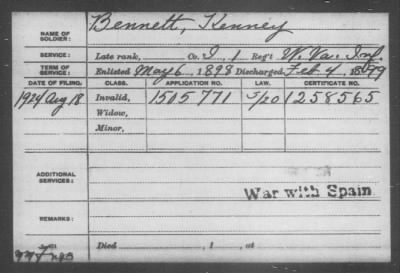 NAME OF SOLDIER: Bennett, Kenney
SERVICE: Late rank, Co. I, 1 Reg't W. Va. Inf.
TERM OF SERVICE: Enlisted May 6, 1898 Discharged Feb. 4, 1899
DATE OF FILING. CLASS. APPLICATION NO. LAW. CERTIFICATE NO.
1924 Aug 18 Invalid, 1505771 5/20 1258565
Widow,
Minor,
ADDITIONAL SERVICES:
War with Spain
REMARKS:
Died , 1 , at